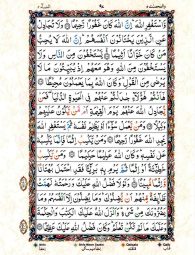 والمحصنٰت ٥ ٩٦ النسآء ٤
وَّاسْتَغْفِرِ اللّٰهَ ؕ اِنَّ اللّٰهَ كَانَ غَفُوْرًا رَّحِيْمًا ۚ وَلَا تُجَادِلْ
عَنِ الَّذِيْنَ يَخْتَانُوْنَ اَنْفُسَهُمْ ؕ اِنَّ اللّٰهَ لَا يُحِبُّ
مَنْ كَانَ خَوَّانًا اَثِيْمًا ۙ يَّسْتَخْفُوْنَ مِنَ النَّاسِ وَلَا
يَسْتَخْفُوْنَ مِنَ اللّٰهِ وَهُوَ مَعَهُمْ اِذْ يُبَيِّتُوْنَ مَا لَا
يَرْضٰى مِنَ الْقَوْلِ ؕ وَكَانَ اللّٰهُ بِمَا يَعْمَلُوْنَ مُحِيْطًا
هٰۤاَنْتُمْ هٰۤؤُلَآءِ جَادَلْتُمْ عَنْهُمْ فِى الْحَيٰوةِ الدُّنْيَا فَمَنْ
يُّجَادِلُ اللّٰهَ عَنْهُمْ يَوْمَ الْقِيٰمَةِ اَمْ مَّنْ يَّكُوْنُ عَلَيْهِمْ
وَكِيْلًا وَمَنْ يَّعْمَلْ سُوْٓءًا اَوْ يَظْلِمْ نَفْسَهٗ ثُمَّ يَسْتَغْفِرِ
اللّٰهَ يَجِدِ اللّٰهَ غَفُوْرًا رَّحِيْمًا وَمَنْ يَّكْسِبْ اِثْمًا فَاِنَّمَا
يَكْسِبُهٗ عَلٰى نَفْسِهٖ ؕ وَكَانَ اللّٰهُ عَلِيْمًا حَكِيْمًا وَمَنْ يَّكْسِبْ
خَطِيْٓئَةً اَوْ اِثْمًا ثُمَّ يَرْمِ بِهٖ بَرِيْٓئًا فَقَدِ احْتَمَلَ بُهْتَانًا
وَّاِثْمًا مُّبِيْنًا وَلَوْلَا فَضْلُ اللّٰهِ عَلَيْكَ وَرَحْمَتُهٗ لَهَمَّتْ
طَّآئِفَةٌ مِّنْهُمْ اَنْ يُّضِلُّوْكَ ؕ وَمَا يُضِلُّوْنَ اِلَّاۤ اَنْفُسَهُمْ وَمَا
يَضُرُّوْنَكَ مِنْ شَيْءٍ ؕ وَاَنْزَلَ اللّٰهُ عَلَيْكَ الْكِتٰبَ وَالْحِكْمَةَ
وَعَلَّمَكَ مَا لَمْ تَكُنْ تَعْلَمُ ؕ وَكَانَ فَضْلُ اللّٰهِ عَلَيْكَ عَظِيْمًا